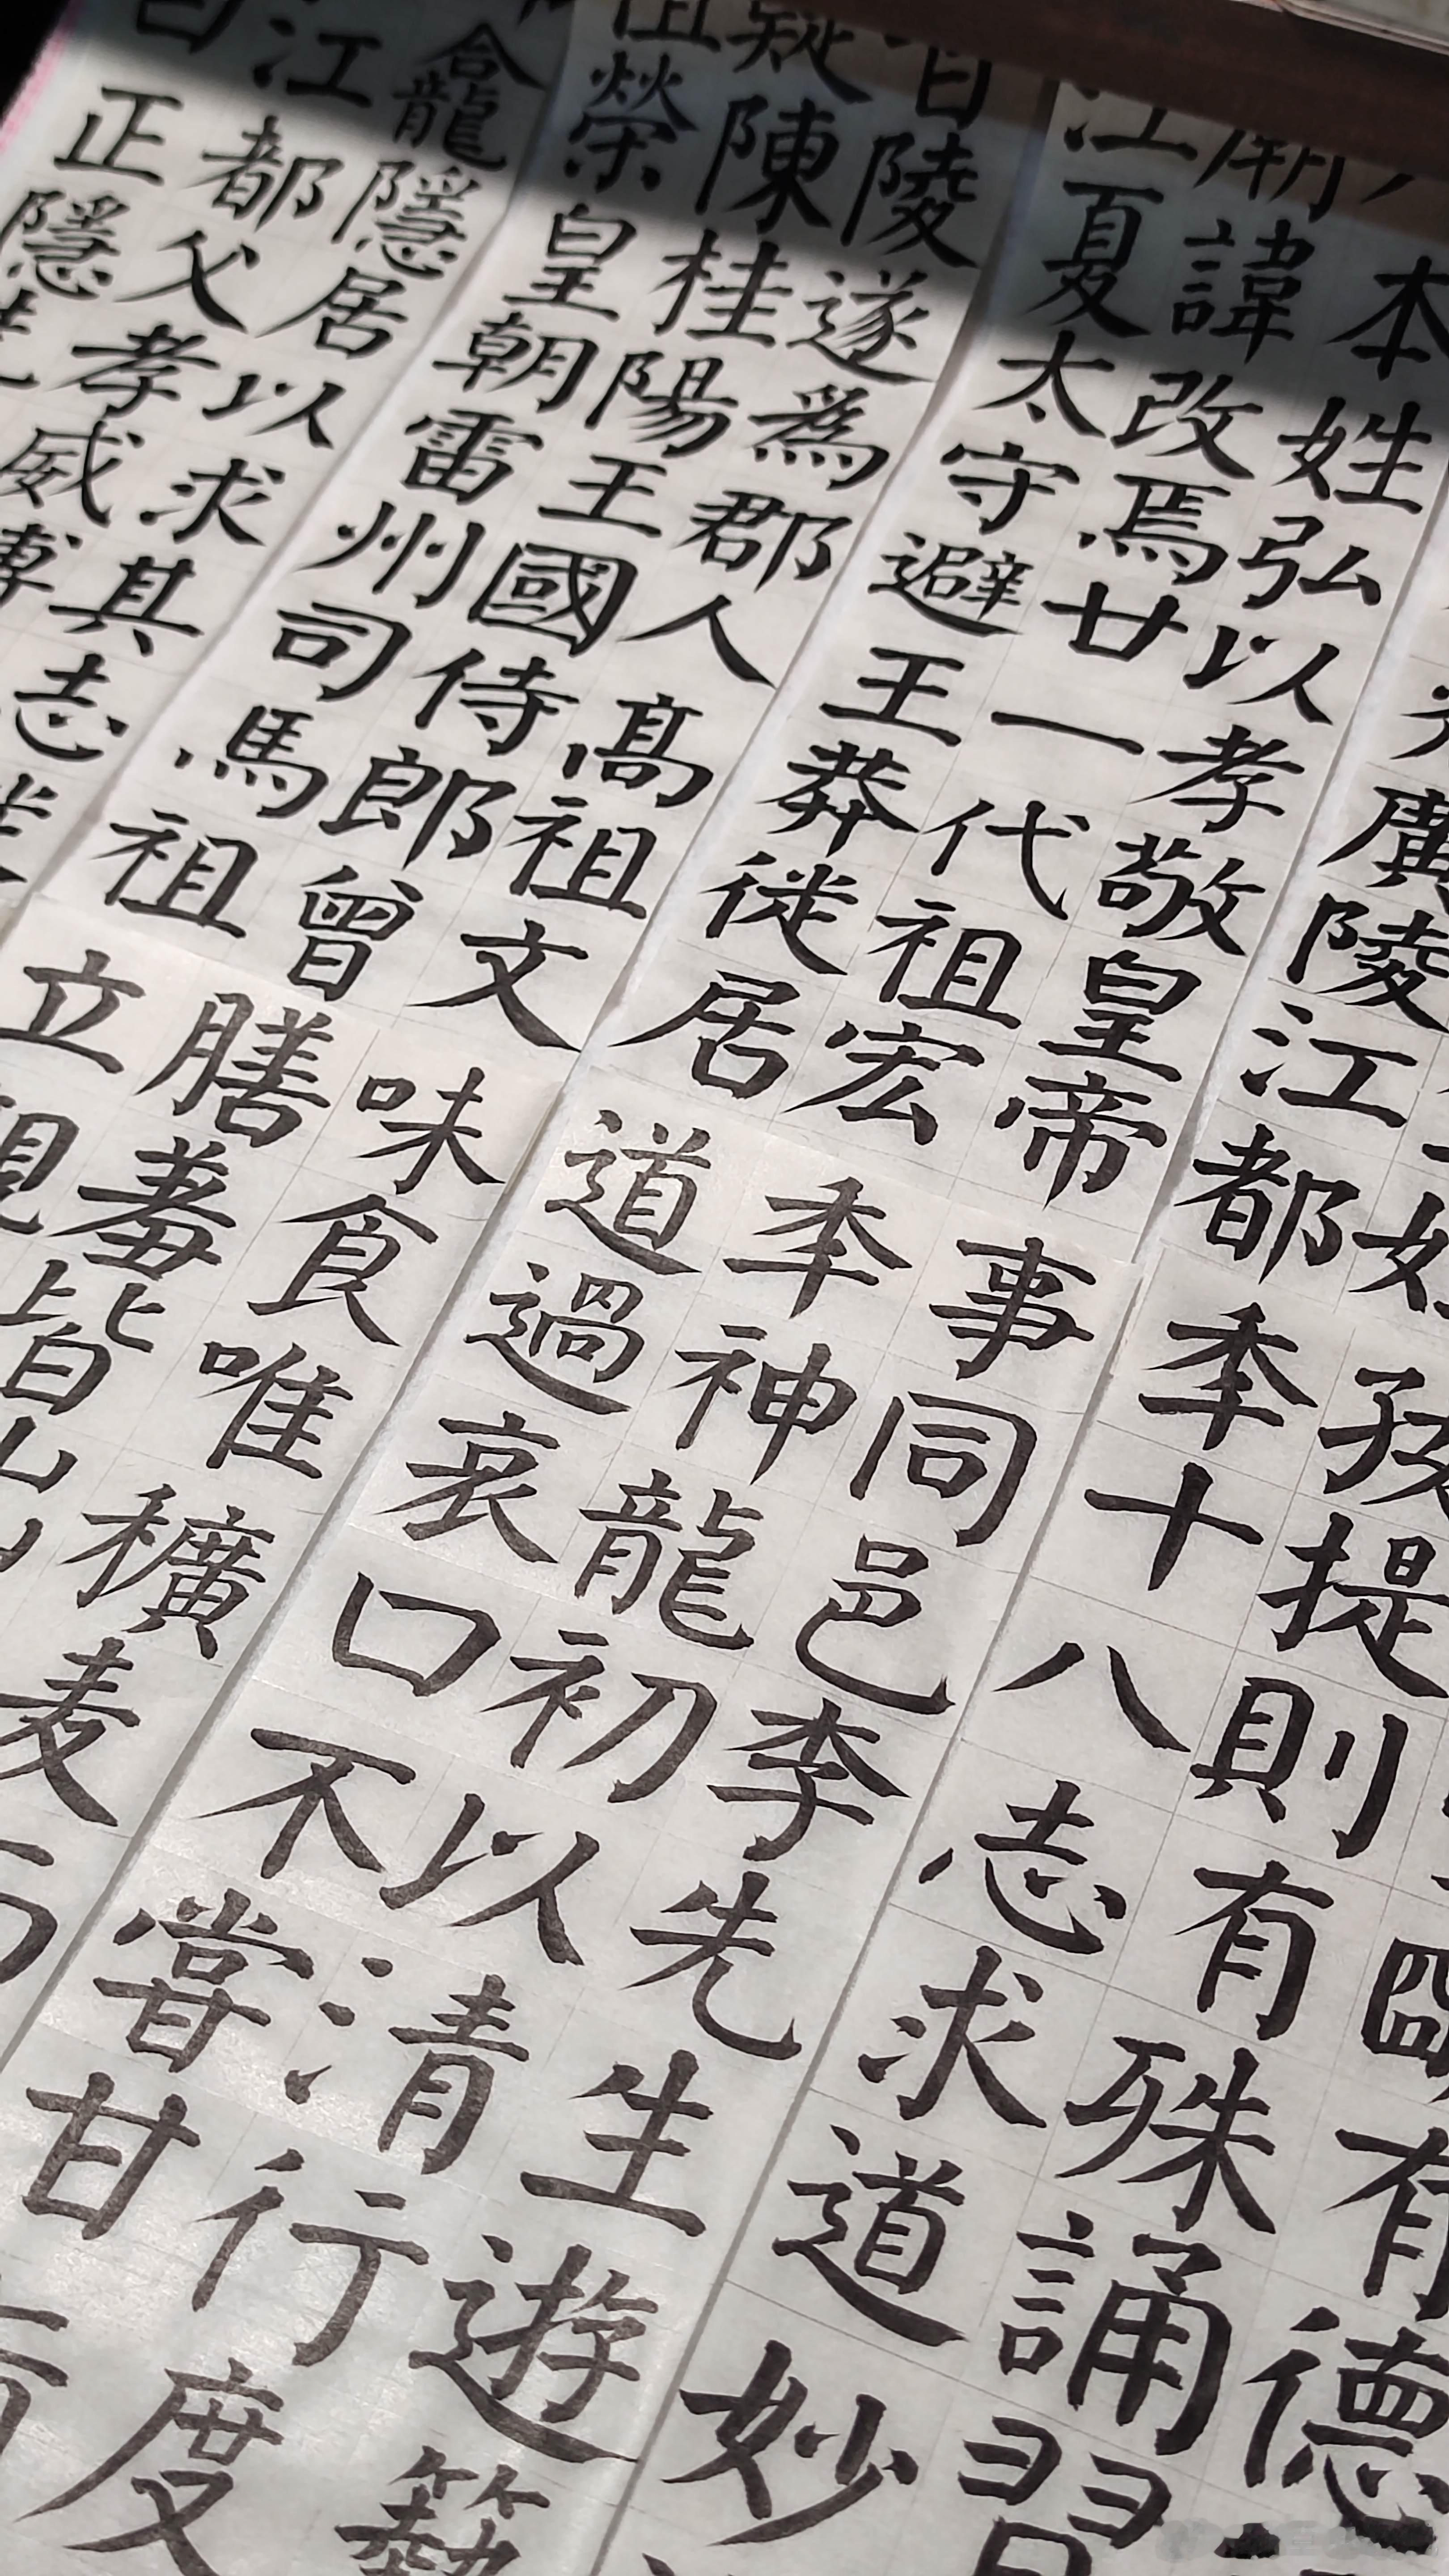 廣陵江都
本姓弘以孝敬皇帝
廟諱改焉廿一代祖宏
江夏太守避王莽徙居
晉陵遂爲郡人高祖文
嶷陳桂陽王國侍郎曾
祖榮皇朝雷州司馬祖
龕隱居以求其志
江都父孝威博
正隱先
有德
孩提則有殊誦習
季十八志求道妙
事同邑李先生遊藝
季神龍初以清行度
道過哀口不甞甘
味食唯穬麦
膳羞皆出
立觀